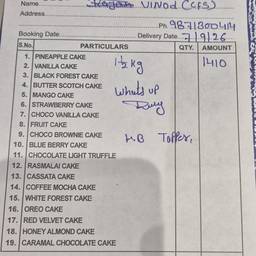 Name Vinod (CFS)
Address
Ph. 9871300414
Booking Date Delivery Date 7/9/26
S.No. PARTICULARS QTY. AMOUNT
1. PINEAPPLE CAKE
2. VANILLA CAKE 1½ kg 1410
3. BLACK FOREST CAKE
4. BUTTER SCOTCH CAKE
5. MANGO CAKE Whats up
6. STRAWBERRY CAKE
7. CHOCO VANILLA CAKE
8. FRUIT CAKE
9. CHOCO BROWNIE CAKE H.B Topper,
10. BLUE BERRY CAKE
11. CHOCOLATE LIGHT TRUFFLE
12. RASMALAI CAKE
13. CASSATA CAKE
14. COFFEE MOCHA CAKE
15. WHITE FOREST CAKE
16. OREO CAKE
17. RED VELVET CAKE
18. HONEY ALMOND CAKE
19. CARAMAL CHOCOLATE CAKE